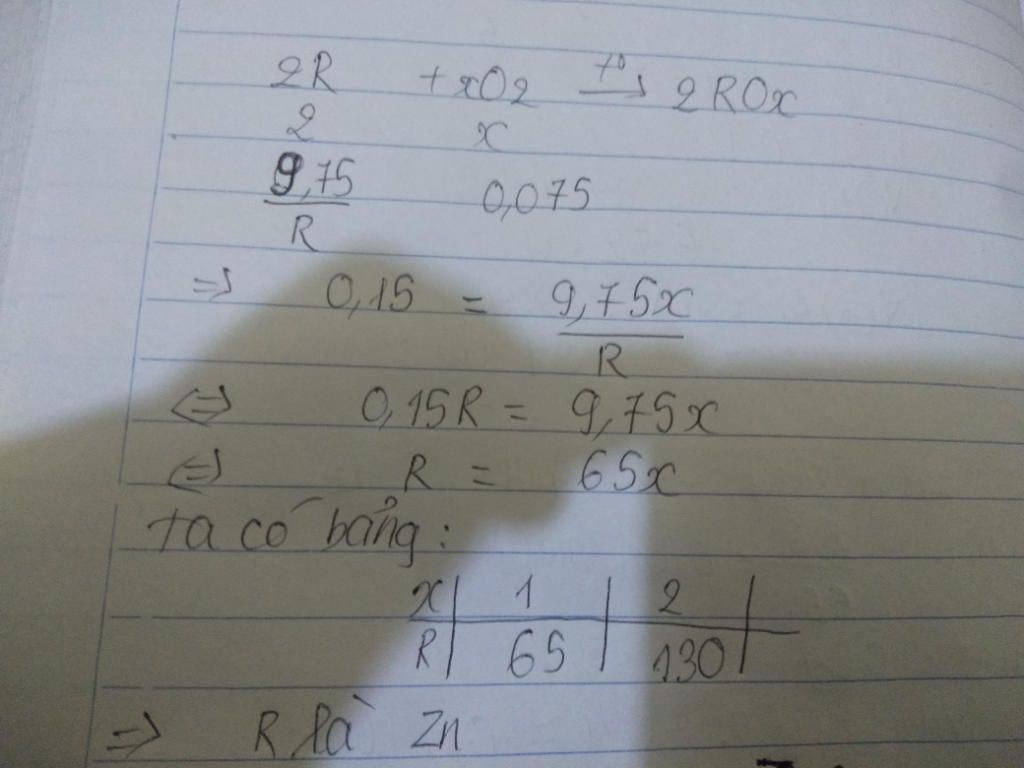 2R + xO2 t° → 2ROx
2 x
9,75 0,075
R
=> 0,15 = 9,75x
R
<=> 0,15R = 9,75x
<=> R = 65x
ta có bảng:
x | 1 | 2 |
R | 65 | 130 |
=> R là Zn